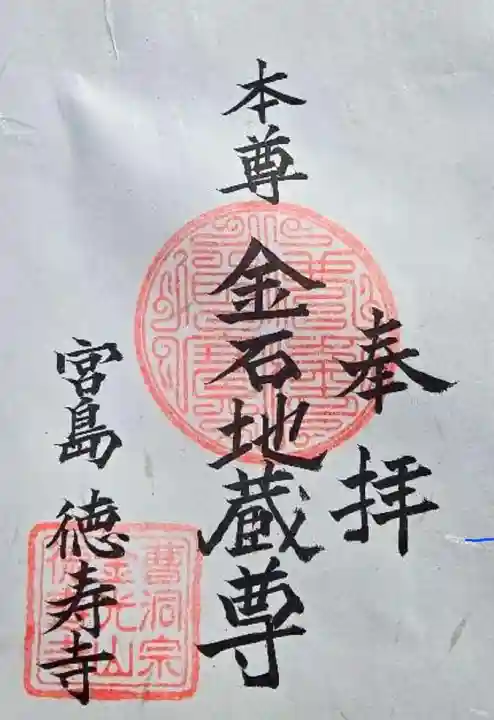 奉拝
本尊
金石地蔵尊
宮島 徳寿寺
曹洞宗
金光山
徳寿寺